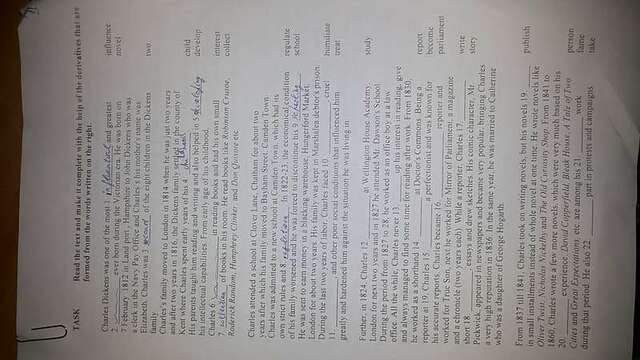 TASK Read the text and make it complete with the help of the derivatives that are
formed from the words written on the right.
Charles Dickens was one of the most 1 influential and greatest influence
2 ever born during the Victorian era. He was born on novel
7 February 1812 in Land port, Hampshire to John Dickens who was
a clerk in the Navy Pay Office and Charles's his mother's name was
Elizabeth. Charles was 3 second of the eight children in the Dickens two
family
Charles's family moved to London in 1814 when he was just two years
and after two years in 1816, the Dickens family settled in the county of
Kent where Charles spent early years of his 4 child
His parents taught him reading and writing and also worked on 5 developing develop
his intellectual capabilities. From early age of his childhood,
Charles 6 in reading books and had his own small interest
7 collection of books of the great writers of the past like Robinson Crusoe, collect
Roderick Random, Humphrey Clinker and Don Quixote etc.
Charles attended a school at Clover Lane, Chatham for about two
years after which his family moved to Bayham Street, Camden Town.
Charles was admitted to a new school at Camden Town, which had its
own strict rules and 8 regulations In 1822-23, the economical condition regulate
of his family worsened and he was forced to discontinue his 9 school
He was sent to earn money in a blacking warehouse, Hungerford Market,
London for about two years. His family was kept in Marshalsea debtor's prison.
During the last two years of labor, Charles faced 10 cruel humiliate
11 and other poor social conditions that influenced him treat
greatly and hardened him against the situation he was living in
Further, in 1824, Charles 12 at Wellington House Academy study
London for next two years and in 1827 he attended Mr. Dawson's School
During the period from 1827 to 28, he worked as an office boy at a law
office. All the while, Charles never 13 up his interest in reading, give
and always managed to find some time for reading after work. From 1830,
he worked as a shorthand 14 at Doctor's Commons. Being a report
reporter at 19, Charles 15 a perfectionist and was known for become
his accurate reports. Charles became 16 reporter and parliament
worked for True Son, next he worked for Mirror of Parliament, a magazine
and a chronicle (two years each). While a reporter, Charles 17 write
short 18 essays and drew sketches. His comic character, Mr. story
Pickwick, appeared in newspapers and became very popular, bringing Charles
a very high reputation in 1836. The same year, he was married to Catherine
who was a daughter of George Hogarth.
From 1837 till 1841, Charles took on writing novels, but his novels 19 publish
in small installments instead of the whole novel at one time. He wrote novels like
Oliver Twist, Nicholas Nickelby and The Old Curiosity Shop. From 1841 to
1860, Charles wrote a few more novels, which were very much based on his
20 experience. David Copperfield, Bleak House, A Tale of Two person
Cities and Great Expectations etc are among his 21 work fame
during that period. He also 22 part in protests and campaigns take